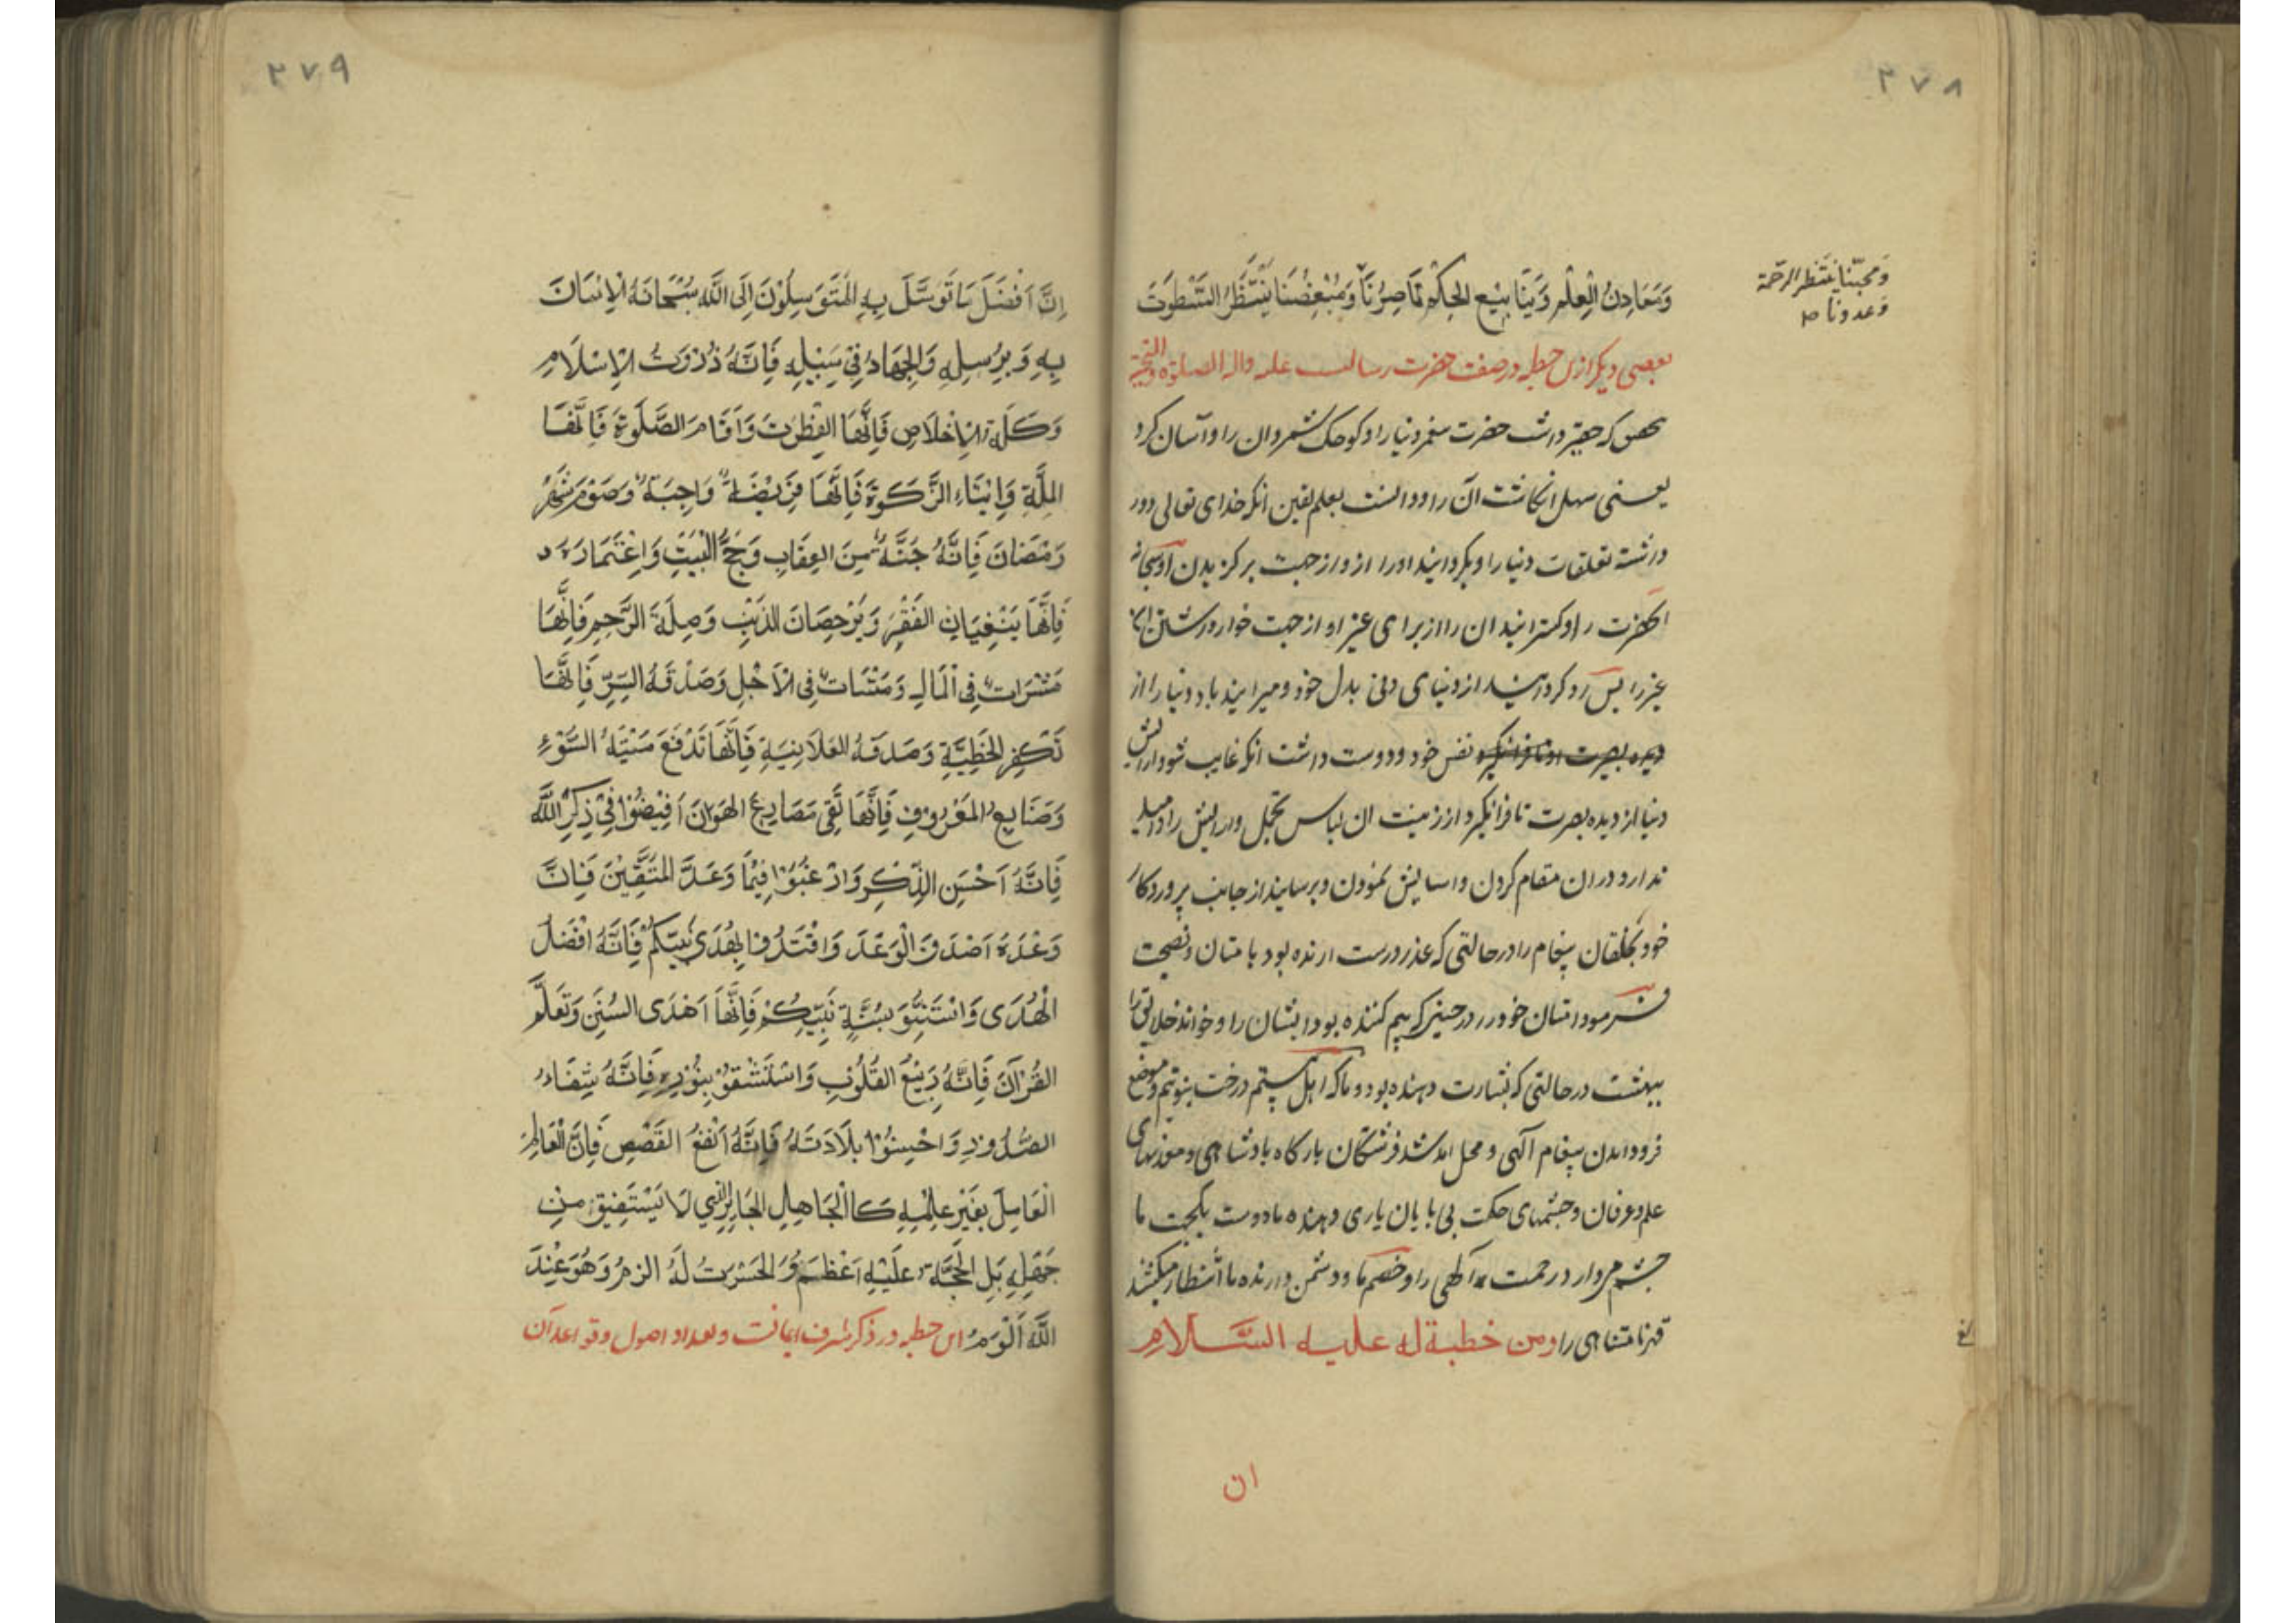 ٢٧٨
وَمَعَادِنُ الْعِلْمِ وَيَنَابِيْع الحِكَم نَاصِرُنَا وَمُبْغِضُنَا يَنْتَظِرُ السَّطْوَتَ
وَمُحِبُّنَا يَنْتَظِرُ الرَّحْمَة
وَعدونا ص
بعضی دیکر ازین خطبه در صفت حضرت رسالت علیه واله الصلوة والتحیه
که حقیر داشت حضرت پیغمبر دنیا را و کوچک شمرد ان را و آسان کرد
یعنی سهل انکاشت آن را و دانست بعلم یقین انکه خدای تعالی دور
داشته تعلقات دنیا را و بکردانید او را از و از جهت برکزیدن او سبحانه
انحضرت را و کسترانید ان را از برای غیر او از جهت خوار داشتن ان
غیر را پس رو کردانید از دنیای دنی بدل خود و میرانید یاد دنیا را از
نفس خود و دوست داشت انکه غایب شود ارایش
دنیا از دیده بصیرت تا فرانکیرد از زینت ان لباس تجمل و ارایش را و امید
ندارد در ان مقام کردن و اسایش نمودن و برسانید از جانب پروردکار
خود بخلقان پیغام را در حالتی که عذر درست ارنده بود با یشان و نصیحت
فرمود امتان خود را در حینی که بیم کننده بود ایشان را و خواند خلایق را
ببهشت در حالتی که بشارت دهنده بود و ما که اهل بیتیم درخت نبوتیم و موضع
فرود امدن پیغام آلهی و محل امد شد فرشتکان بارکاه پادشاهی و معدنهای
علم و عرفان و چشمهای حکمت بی پایان یاری دهنده ما و دوست یکجهت ما
چشم میدارد رحمت آلهی را و خصم ما و دشمن دارنده ما انتظار میکشد
قهر نامتناهی را ومن خطبة له علیه السَّلام
ان
٢٧٩
اِنَّ اَفْضَلَ مَا تَوَسَّلَ بِهِ الْمُتَوَسِلُوْنَ اِلَى اللَّه سُبْحَانَهُ الاِیْمَانَ
بِهِ وَبِرُسِلِهِ وَالْجِهَادُ فِیْ سَبِیْلِهِ فَاِنَّهُ ذُرْوَتُ الاِسْلَامِ
وَكَلِمَة الاِخْلَاصِ فَاِنَّهَا الفِطْرَتَ وَاَقَامَ الصَّلٰوةَ فَاِنَّهَا
المِلَّةِ وَاِیْتَاءَ الزَّكَوةَ فَاِنَّهَا فَرِیْضَةٌ وَاجِبَةٌ وَصَوْمَ شَهْرِ
رَمَضَانَ فَاِنَّهُ جُنَّةٌ مِنَ العِقَابِ وَحَجُّ الْبَیْتِ وَاِعْتَمَارَهُ د
فَاِنَّهَا یَنْفِیَانِ الفَقْرَ وَیَرْحِضَانَ الذَنْبِ وَصِلَةَ الرَّحِمِ فَاِنَّهَا
مَثْرَاتٌ فِی الْمَالِ وَمَنْسَاتٌ فِی الْاَجْلِ وَصَدْقَهُ السِّرِّ فَاِنَّهَا
تَكفِر الخَطِیَّةِ وَصَدقَهُ العَلَانِیَةِ فَاِنَّهَا تَدْفَعَ مَیْتَهُ السُّوْءِ
وَصَنَایع المَعْرُوفِ فَاِنَّهَا تَقِی مَصَارِعَ الهَوَانَ اَفِیْضُوْا فِیْ ذِكْرِ اللَّه
فَاِنَّهُ اَحْسَن الذِّكِر وَارْغَبُوْا فِیْمَا وَعَدَ الْمُتَّقِیْنَ فَاِنَّ
وَعْدَهُ اَصْدَقَ الْوَعْدَ وَاقْتَدُوا بِهُدَی نَبِیِّكُمْ فَاِنَّهُ افْضَلُ
الْهُدَی وَاسْتَنُّو بِسُنَّةِ نَبِیِّكُمْ فَاِنَّهَا اَهْدَی السُنَنِ وَتَعَلَّم
القُرْآنَ فَاِنَّهُ رَبِیْعُ القُلُوْبِ وَاسْتَشْفُوْ بِنُوْرِهِ فَاِنَّهُ شِفَاءُ
الصُّدُورِ وَاحْسِنُوْا تِلَاوَتَهُ فَاِنَّهُ اَنْفَعُ القَصَصِ فَاِنَّ الْعَالِمَ
الْعَامِلَ بِغَیْرِ عِلْمِهِ كَاالْجَاهِلِ الْجَایِرِ الَّذِی لَا یَسْتَفِیْقُ مِنْ
جَهْلِهِ بَلِ الحُجَّةَ عَلَیْهِ اَعْظَم وَالحَسْرَتُ لَهُ الزمُ وَهُوَ عِنْدَ
اللَّه اَلْوَمُ این خطبه در ذکر شرف ایمانست و تعداد اصول و قواعد آن